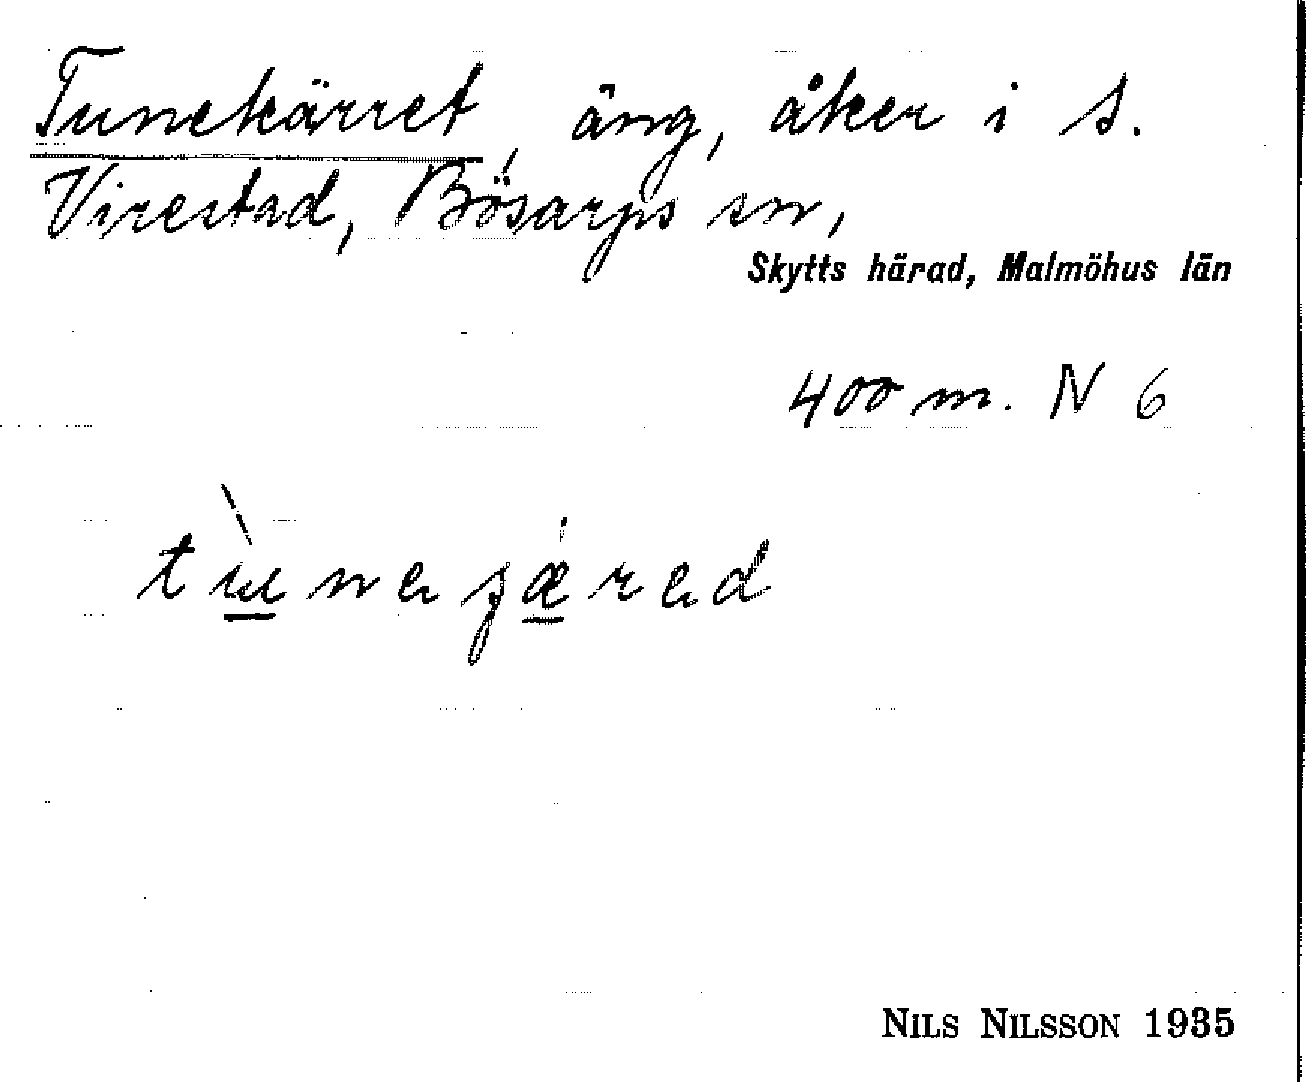 Tunekärret, äng, åker i S.
Virestad, Bösarps sn,
Skytts härad, Malmöhus län
400 m. N 6
NILS NILSSON 1935